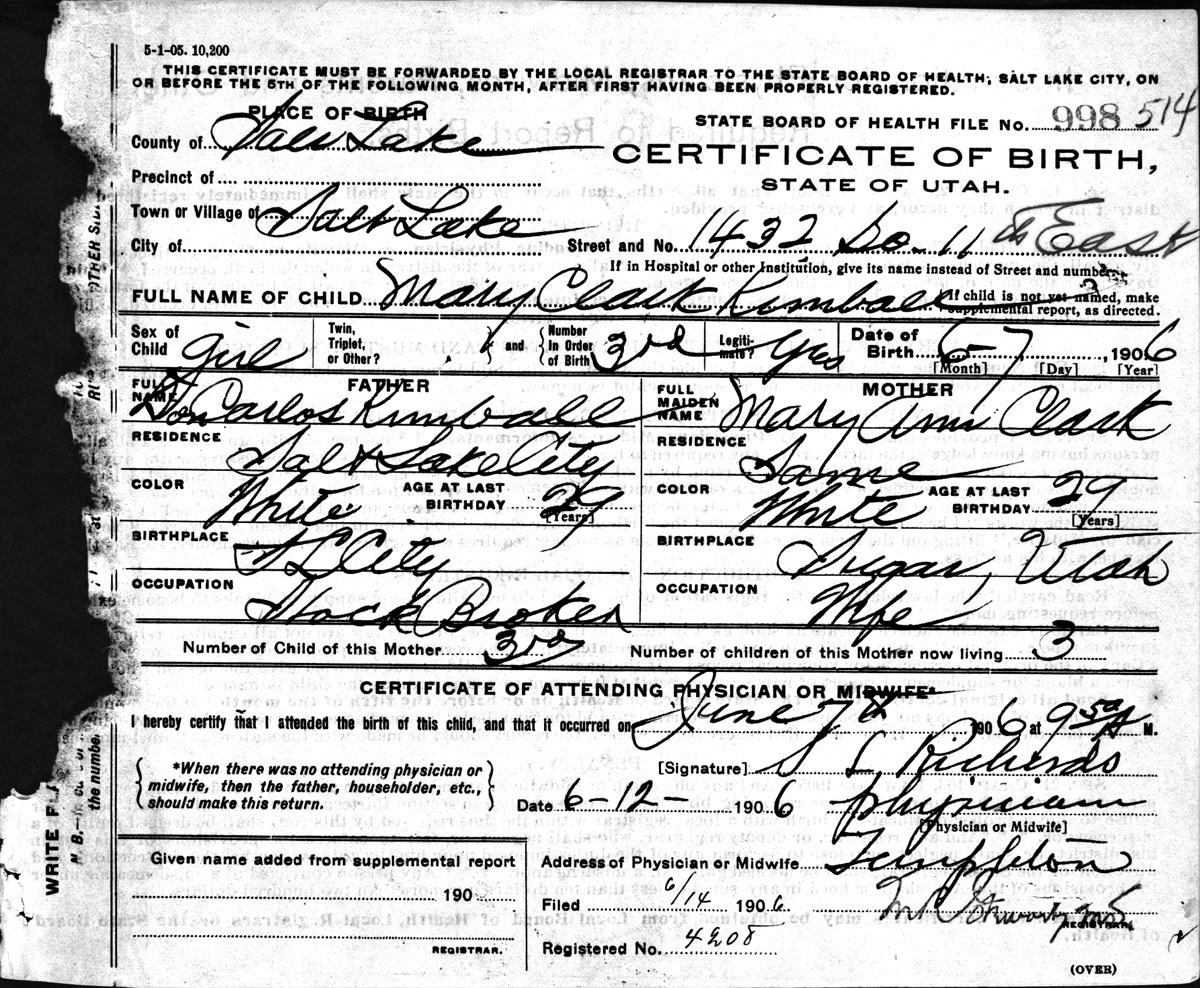 5-1-05. 10,200
THIS CERTIFICATE MUST BE FORWARDED BY THE LOCAL REGISTRAR TO THE STATE BOARD OF HEALTH, SALT LAKE CITY, ON
OR BEFORE THE 5TH OF THE FOLLOWING MONTH, AFTER FIRST HAVING BEEN PROPERLY REGISTERED.
PLACE OF BIRTH
STATE BOARD OF HEALTH FILE No. 998 514
County of Salt Lake
CERTIFICATE OF BIRTH,
Precinct of
STATE OF UTAH.
Town or Village of Salt Lake
City of
Street and No. 1432 So - 11th East
If in Hospital or other Institution, give its name instead of Street and number.
FULL NAME OF CHILD Mary Clark Kimball
If child is not yet named, make
supplemental report, as directed.
Sex of Child girl
Twin, Triplet, or Other?
and
Number In Order of Birth 3rd
Legitimate? Yes
Date of Birth 6-7, 1906
[Month] [Day] [Year]
FATHER
FULL NAME Don Carlos Kimball
RESIDENCE
Salt Lake City
COLOR White
AGE AT LAST BIRTHDAY 29
[Years]
BIRTHPLACE S L City
OCCUPATION
Stock Broker
MOTHER
FULL MAIDEN NAME Mary Ann Clark
RESIDENCE
Same
COLOR White
AGE AT LAST BIRTHDAY 29
[Years]
BIRTHPLACE
Sugar, Utah
OCCUPATION
Wife
Number of Child of this Mother 3rd
Number of children of this Mother now living 3
CERTIFICATE OF ATTENDING PHYSICIAN OR MIDWIFE*
I hereby certify that I attended the birth of this child, and that it occurred on June 7th 1906 at 9 50 A M.
*When there was no attending physician or
midwife, then the father, householder, etc.,
should make this return.
[Signature] S L Richards
Date 6-12- 1906 physician
[Physician or Midwife]
Given name added from supplemental report
190
REGISTRAR.
Address of Physician or Midwife Templeton
Filed 6/14 1906
REGISTRAR.
Registered No. 4208
(OVER)
OTHER SID
WRITE P
B.—In
the numbe